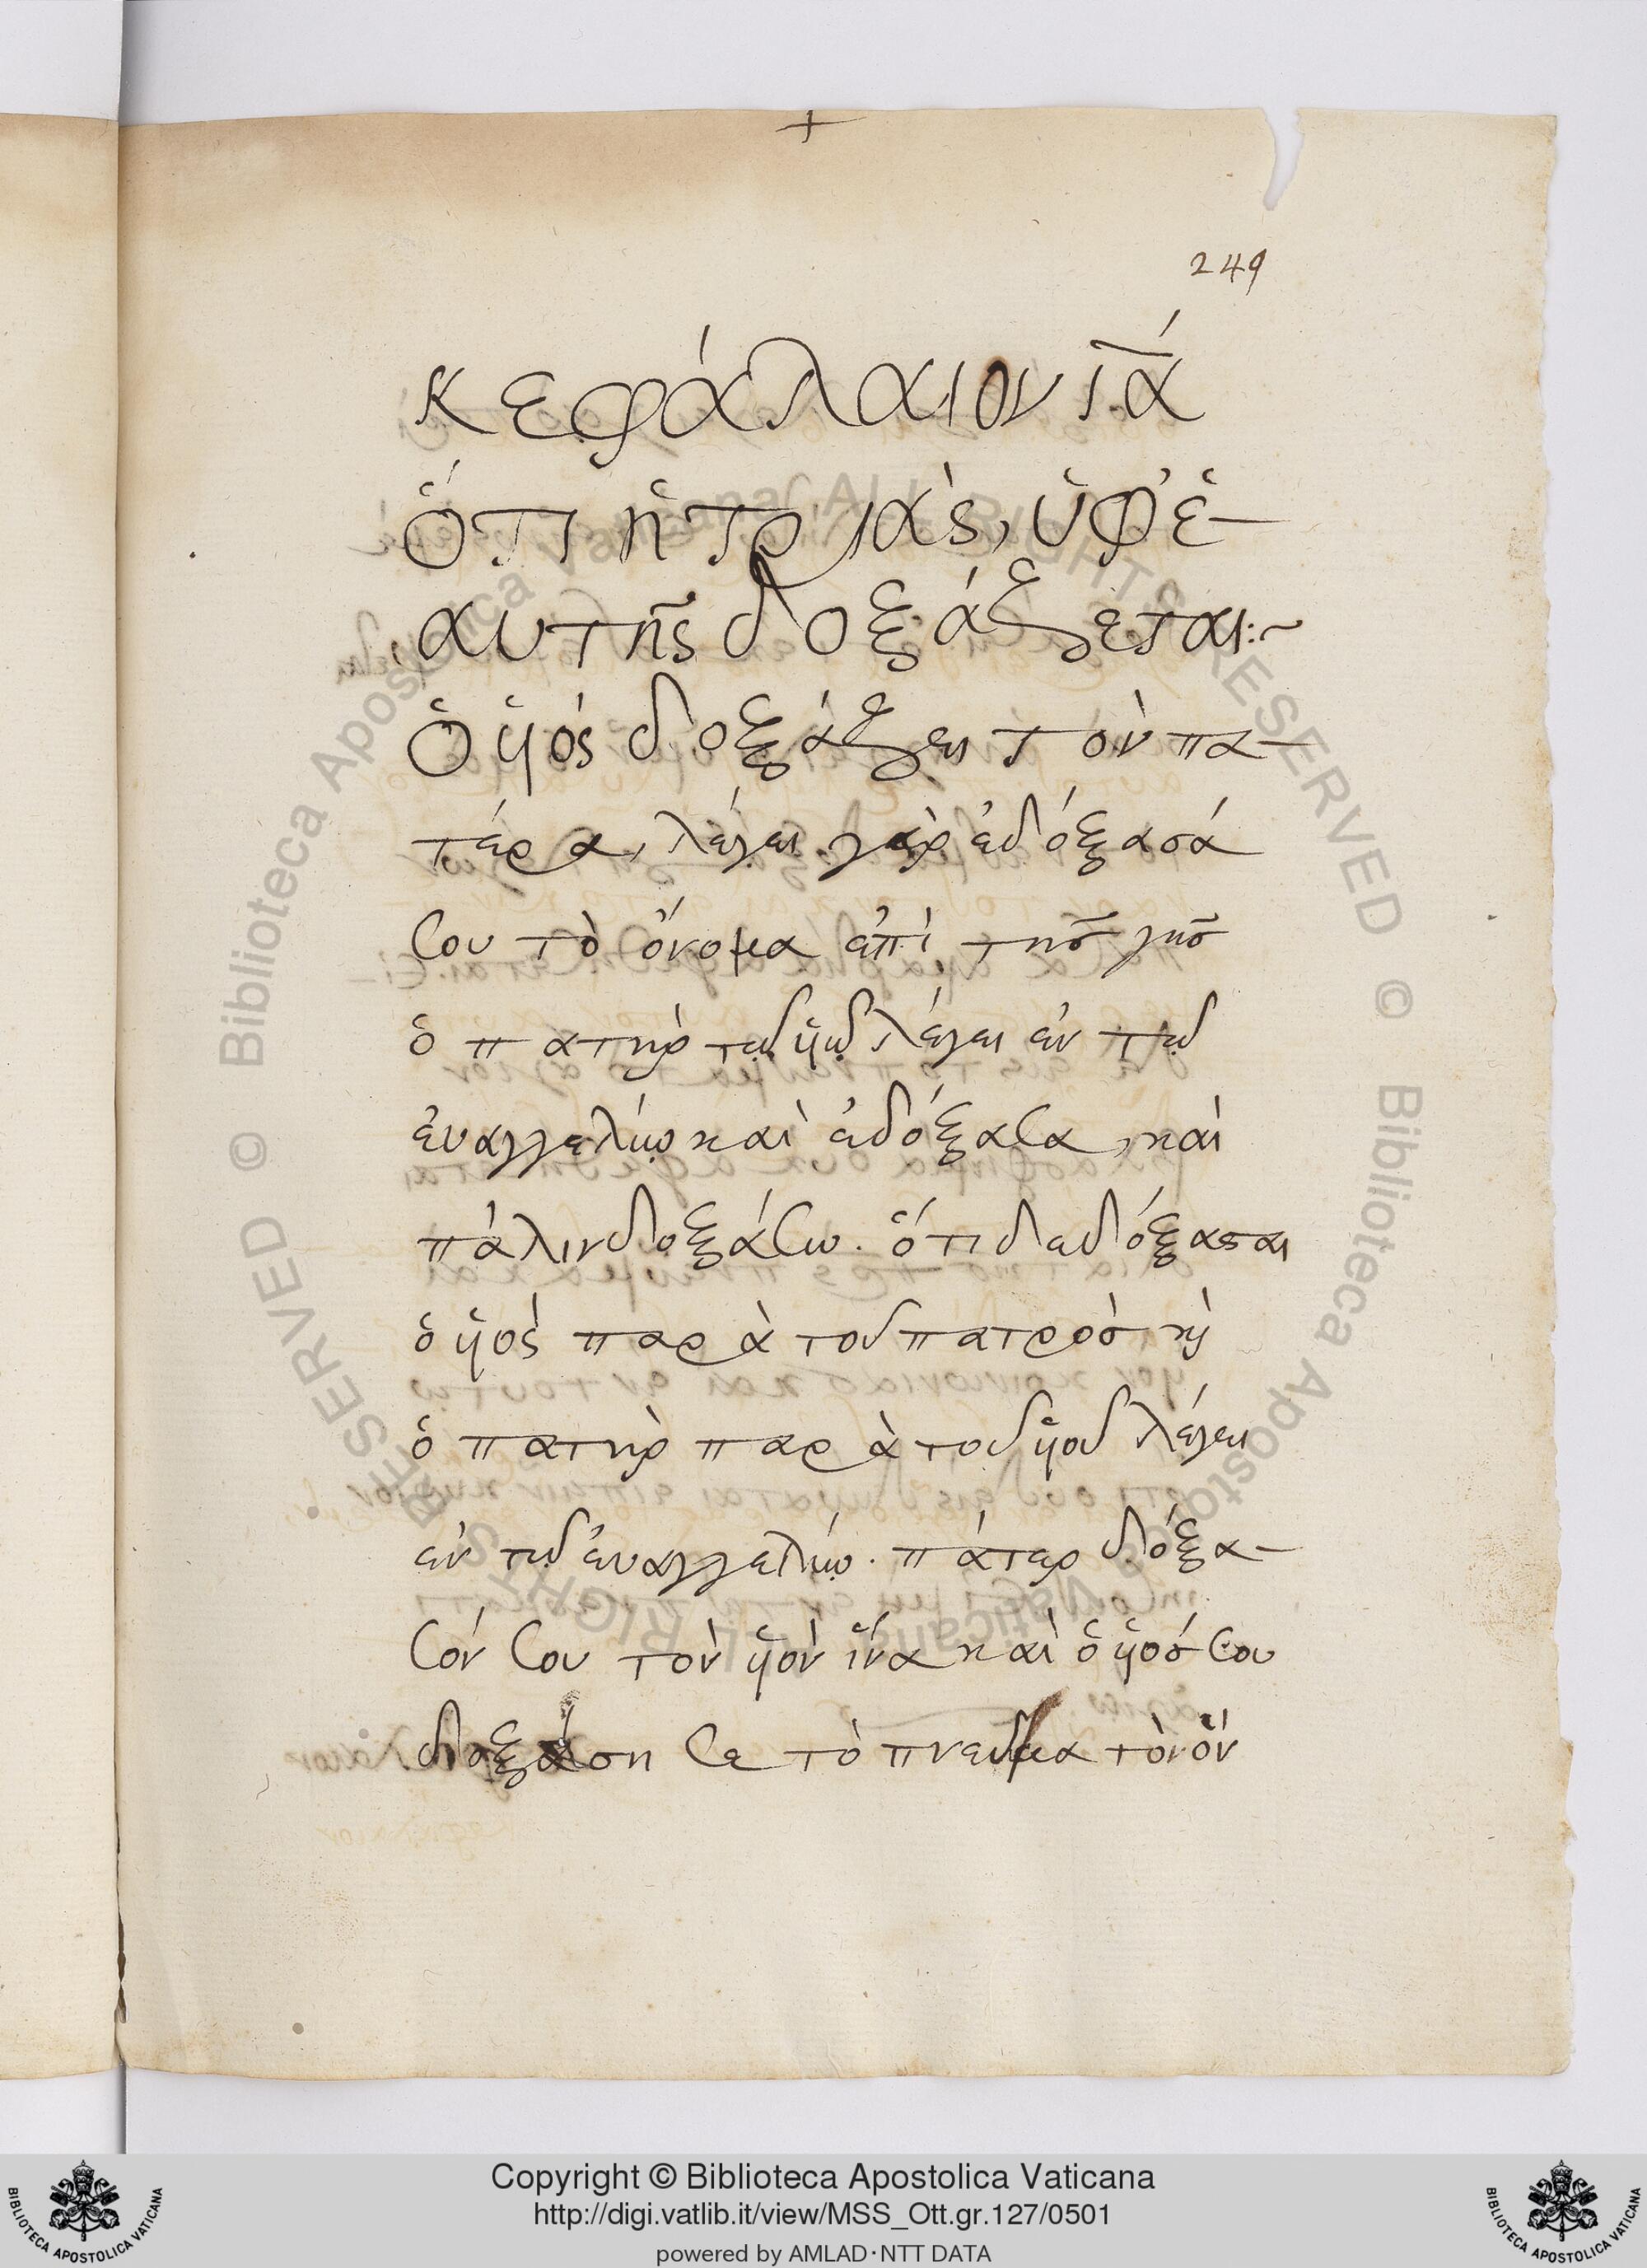 +
249
κεφάλαιον ιά
ὅτι ἡ τριὰς, ὑφ' ἑ-
αυτῆς δοξάζεται:~
Ὁ ὑιός δοξάζει τὸν πα-
τέρα, λέγει γὰρ ἐδόξασά
σου τὸ ὄνομα ἐπὶ τῆσ γῆσ
ὁ πατὴρ τῷ ὑιῷ λέγει ἐν τῷ
ἐυαγγελίῳ καὶ ἐδόξασα, καὶ
πάλιν δοξάσω. ὅτι δεδόξασαι
ὁ ὑιὸς παρὰ τοῦ πατρὸσ κὶ
ὁ πατὴρ παρὰ τοῦ ὑιοῦ λέγει
ἐν τῷ ἐυαγγελίῳ. πάτερ δόξα-
σόν σου τὸν ὑιὸν ἵνα καὶ ὁ ὑιόσ σου
δοξάση σε τὸ πνεῦμα τὸν ὅν
Copyright © Biblioteca Apostolica Vaticana
http://digi.vatlib.it/view/MSS_Ott.gr.127/0501
powered by AMLAD·NTT DATA
BIBLIOTECA APOSTOLICA VATICANA
BIBLIOTECA APOSTOLICA VATICANA
© Biblioteca Apostolica Vaticana, ALL RIGHTS RESERVED
© Biblioteca Apostolica Vaticana, ALL RIGHTS RESERVED